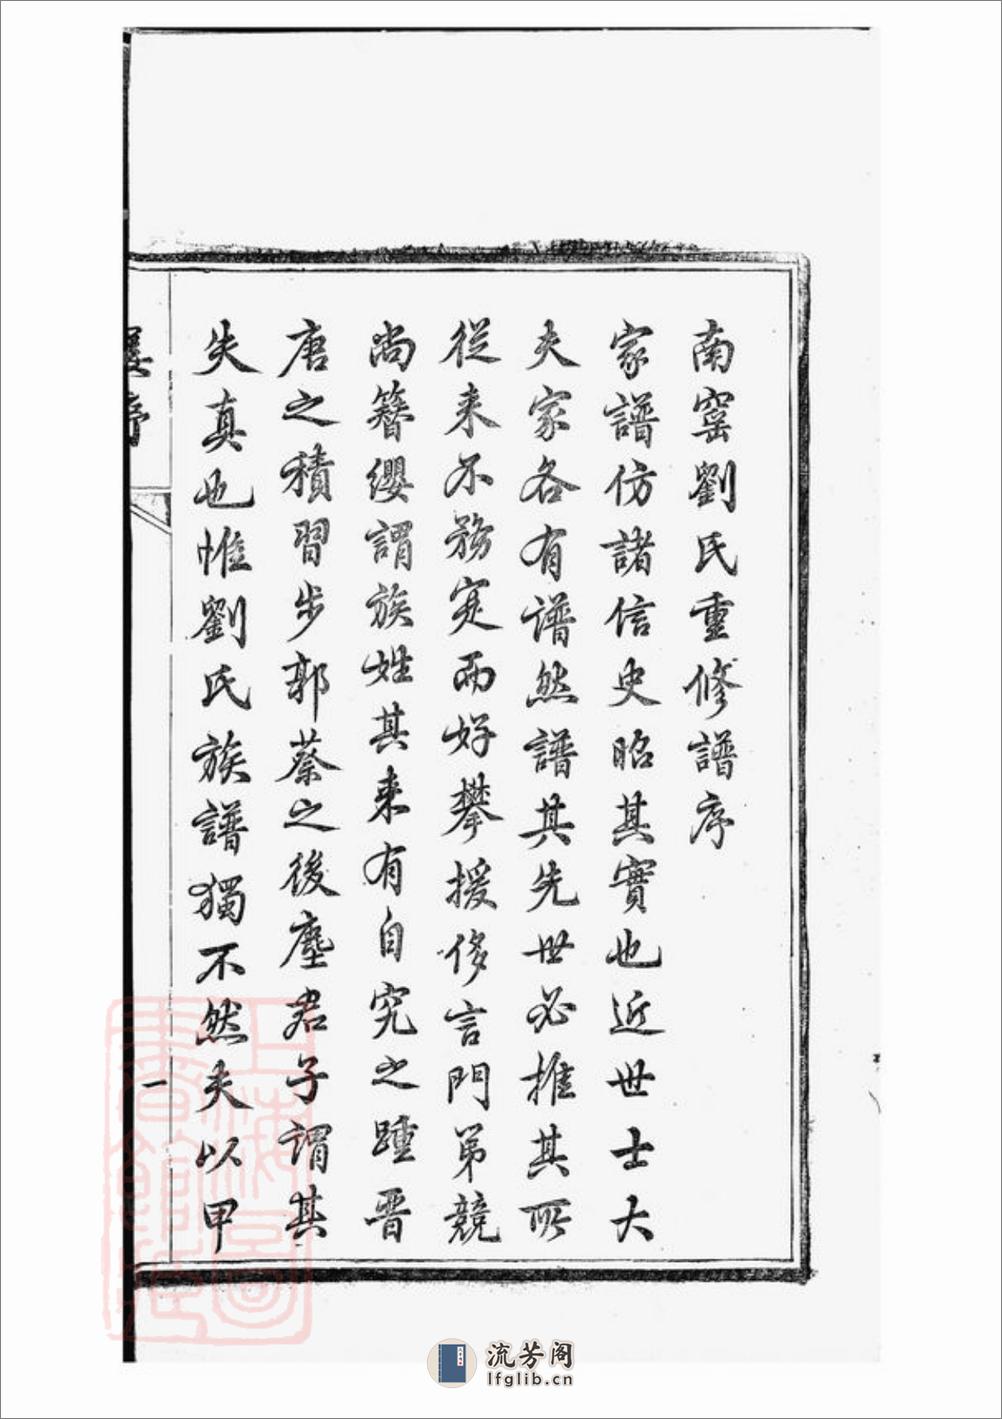 南窑劉氏重修譜序
家譜仿諸信史昭其實也近世士大
夫家各有谱然譜其先世必推其所
從来不務实而好攀援侈言門弟競
尚簪纓謂族姓其来有自究之踵晋
唐之積習步郭蔡之後塵君子謂其
失真也惟劉氏族譜獨不然夫以甲
序
一
上海圖書館藏
流芳阁
lfglib.cn